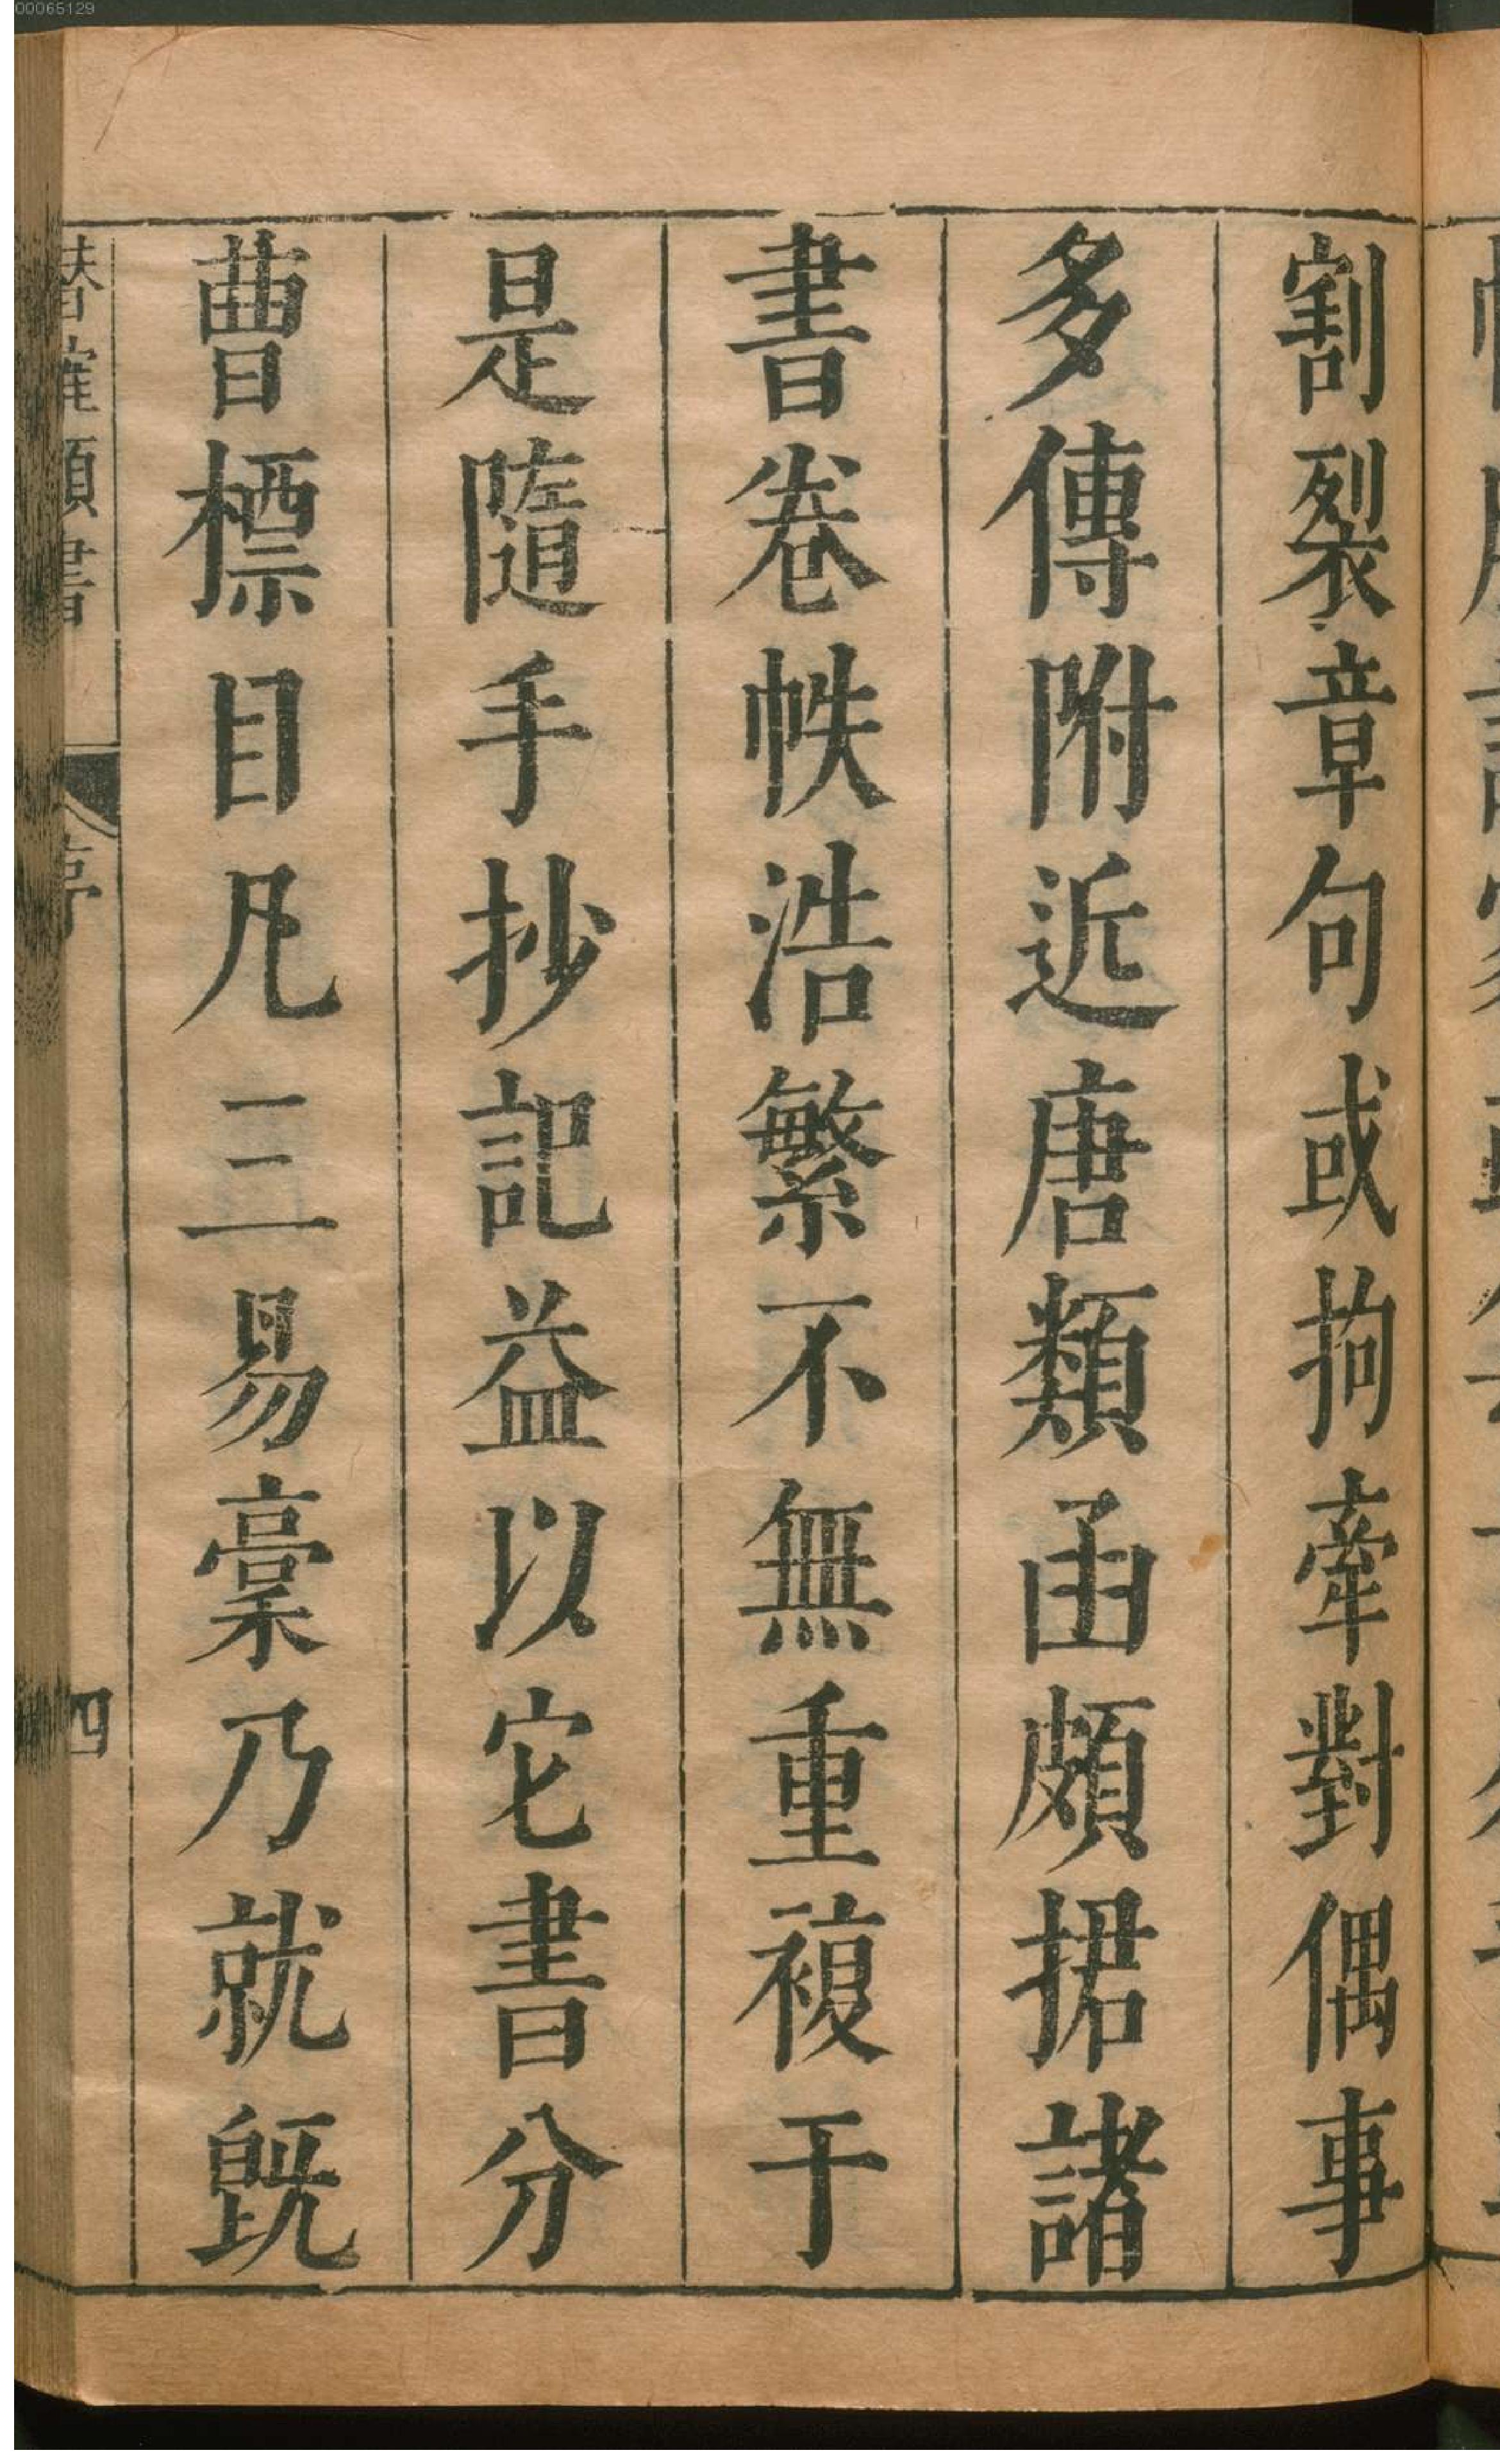 00065129
割裂章句或拘牽對偶事
多傳附近唐類函頗捃諸
書卷帙浩繁不無重複于
是隨手抄記益以它書分
曹標目凡三易稾乃就旣
類書
序
四